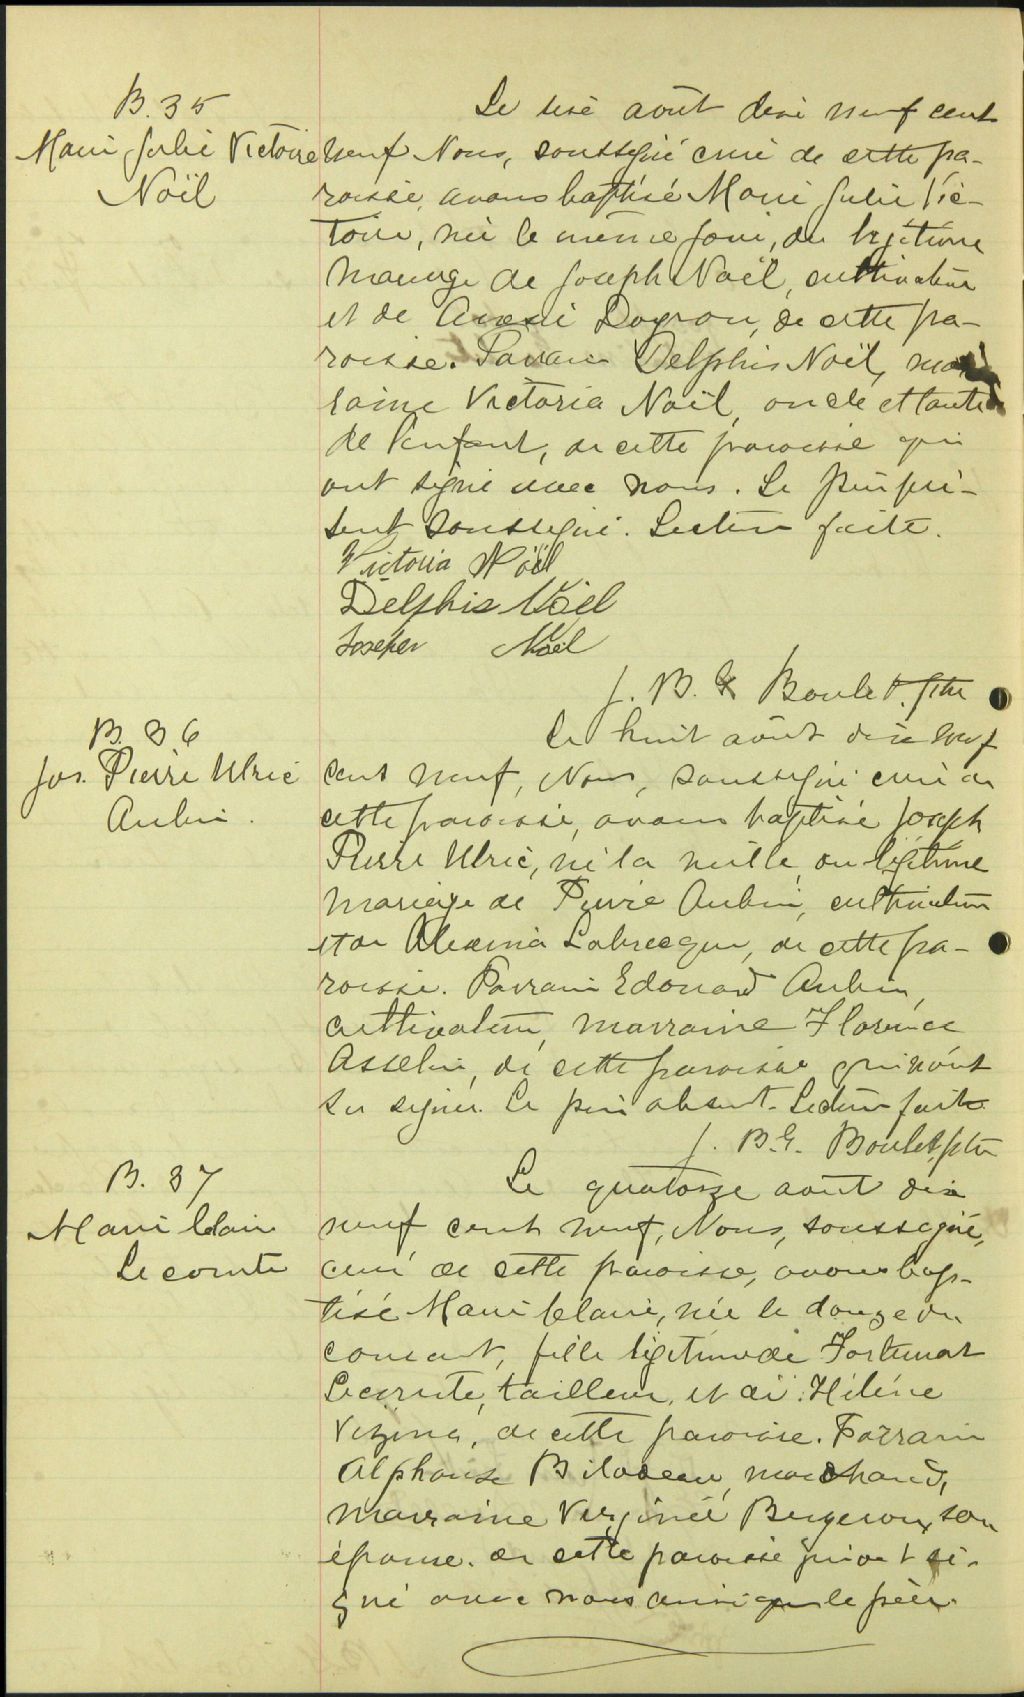 B. 35
Marie Julie Victoire
Noël
Le six août dix neuf cent
neuf Nous, soussigné curé de cette pa-
roisse, avons baptisé Marie Julie Vic-
toire, née le même jour, du légitime
mariage de Joseph Noël, cultivateur
et de Doyron, de cette pa-
roisse. Parrain Delphis Noël, mar
raine Victoria Noël, oncle et tante
de l'enfant, de cette paroisse qui
ont signé avec nous. Le père pré-
sent soussigné. Lecture faite.
Victoria Noël
Delphis Noël
Joseph Noël
J. B. G Boulet. ptre
B. 36
Jos. Pierre Ulric
Aubin.
Le huit août dix neuf
cent neuf, Nous, soussigné curé de
cette paroisse, avons baptisé Joseph
Pierre Ulric, né la veille, du légitime
mariage de Pierre Aubin, cultivateur
et de Alexina Labrecque, de cette pa-
roisse. Parrain Edouard Aubin,
cultivateur, marraine Florence
Asselin, de cette paroisse qui n'ont
su signer. Le père absent. Lecture faite
J. B. G. Boulet, ptre
B. 37
Marie Claire
Lecomte
Le quatorze août dix
neuf cent neuf, Nous, soussigné,
curé de cette paroisse, avons bap-
tisé Marie Claire, née le douze du
courant, fille légitime de Fortunat
Lecomte, tailleur, et de Hélène
Vezina, de cette paroisse. Parrain
Alphonse Bilodeau, marchand,
marraine Virginie Bergeron, son
épouse. de cette paroisse qui ont si-
gné avec nous ainsi que le père.